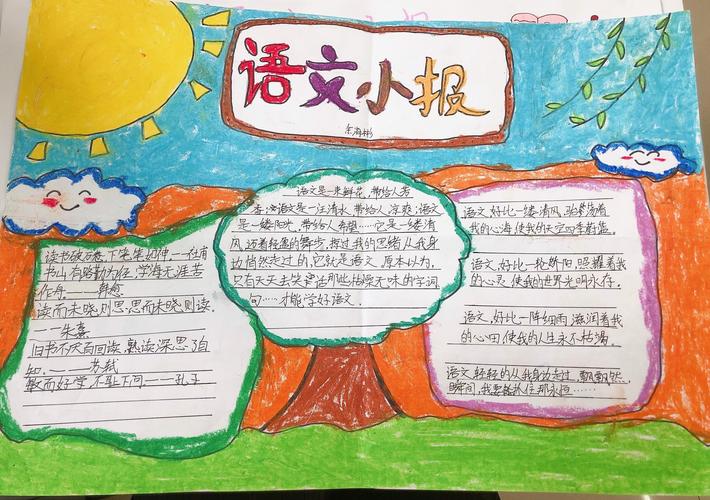 语文小报
余海彬
读书破万卷,下笔如有神。——杜甫
书山有路勤为径,学海无涯苦
作舟。——韩愈
读而未晓,则思,思而未晓,则读。
——朱熹
旧书不厌百回读,熟读深思子自
知。——苏轼
敏而好学,不耻下问。——孔子
——语文是一束鲜花,带给人芳
香;语文是一汪清水,带给人凉爽;语文
是一缕阳光,带给人希望……它是一缕清
风,迈着轻盈的舞步,掠过我的思绪,从我身
边悄然走过的,它就是语文,原本以为,
只有天天去背那些枯燥无味的字词
句……才能学好语文。
语文,好比一缕清风,荡着
我的心海,使我的天空四季蔚蓝。
语文,好比一轮骄阳,照耀着我
的心灵,使我的世界光明永存。
语文,好比一阵细雨,滋润着我
的心田,使我的人生永不枯竭。
语文,轻轻的从我身边走过,飘飘然,
瞬间,我要抓住那永恒……